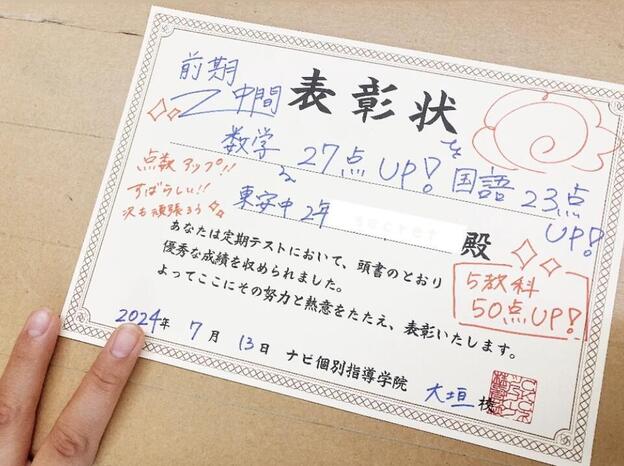 前期
中間
表彰状
数学 27点 UP! 国語 23点 UP!
点数アップ!!
すばらしい!!
次も頑張ろう
東安中2年 secret 殿
あなたは定期テストにおいて、頭書のとおり
優秀な成績を収められました。
よってここにその努力と熱意をたたえ、表彰いたします。
5教科
50点UP!
2024年 7月 13日 ナビ個別指導学院 大垣 校